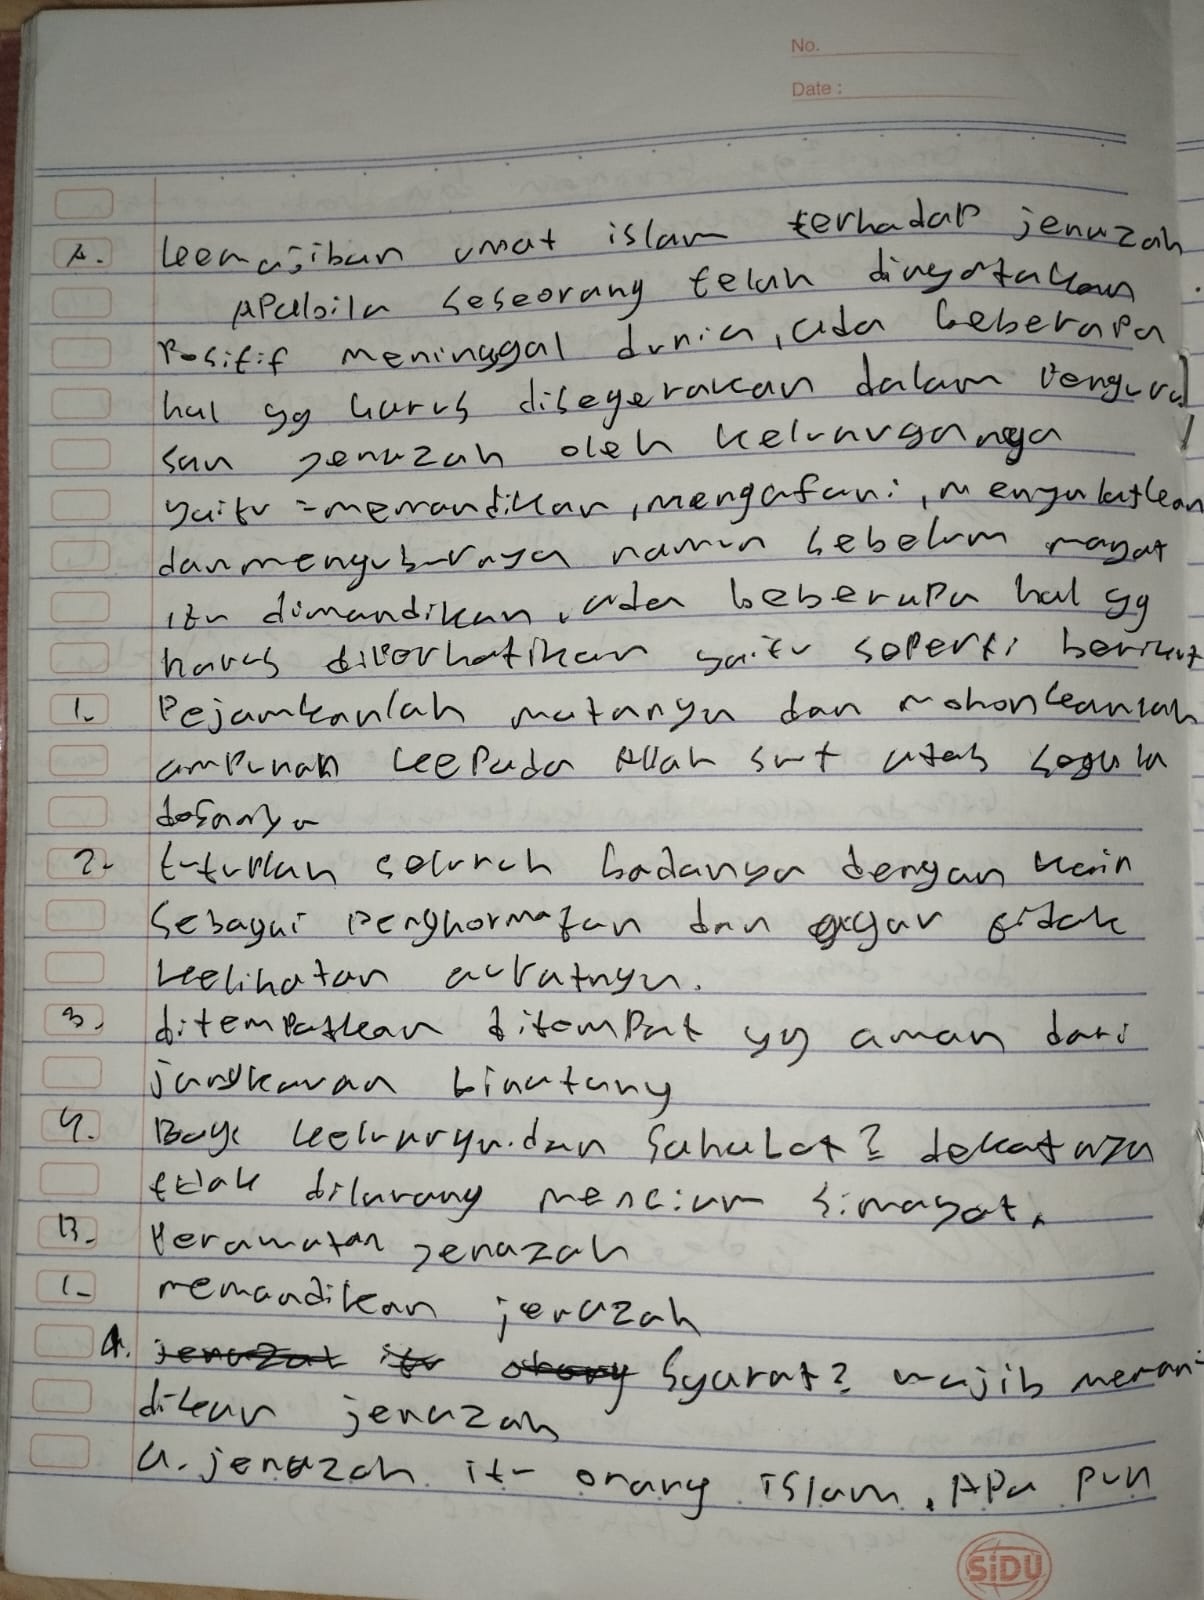 No.
Date :
A. kewajiban umat islam terhadap jenazah
Apabila seseorang telah dinyatakan
Positif meninggal dunia, ada beberapa
hal yg harus disegerakan dalam penguru
san jenazah oleh keluarganya
yaitu = memandikan, mengafani, menyalatkan
dan menguburnya namun sebelum mayat
itu dimandikan, ada beberapa hal yg
harus diperhatikan yaitu seperti berikut
1. Pejamkanlah matanya dan mohonkanlah
ampunan kepada Allah swt atas segala
dosanya
2. tutuplah seluruh badanya dengan kain
sebagai penghormatan dan agar tidak
kelihatan auratnya.
3. ditempatkan ditempat yg aman dari
jangkauan binatang
4. Bagi keluarga dan sahabat2 dekatnya
tidak dilarang mencium simayat.
B. Perawatan jenazah
1. memandikan jenazah
a. jenazah itu orang Syarat2 wajib meman-
dikan jenazah
a. jenazah itu orang islam, Apa pun
SiDU